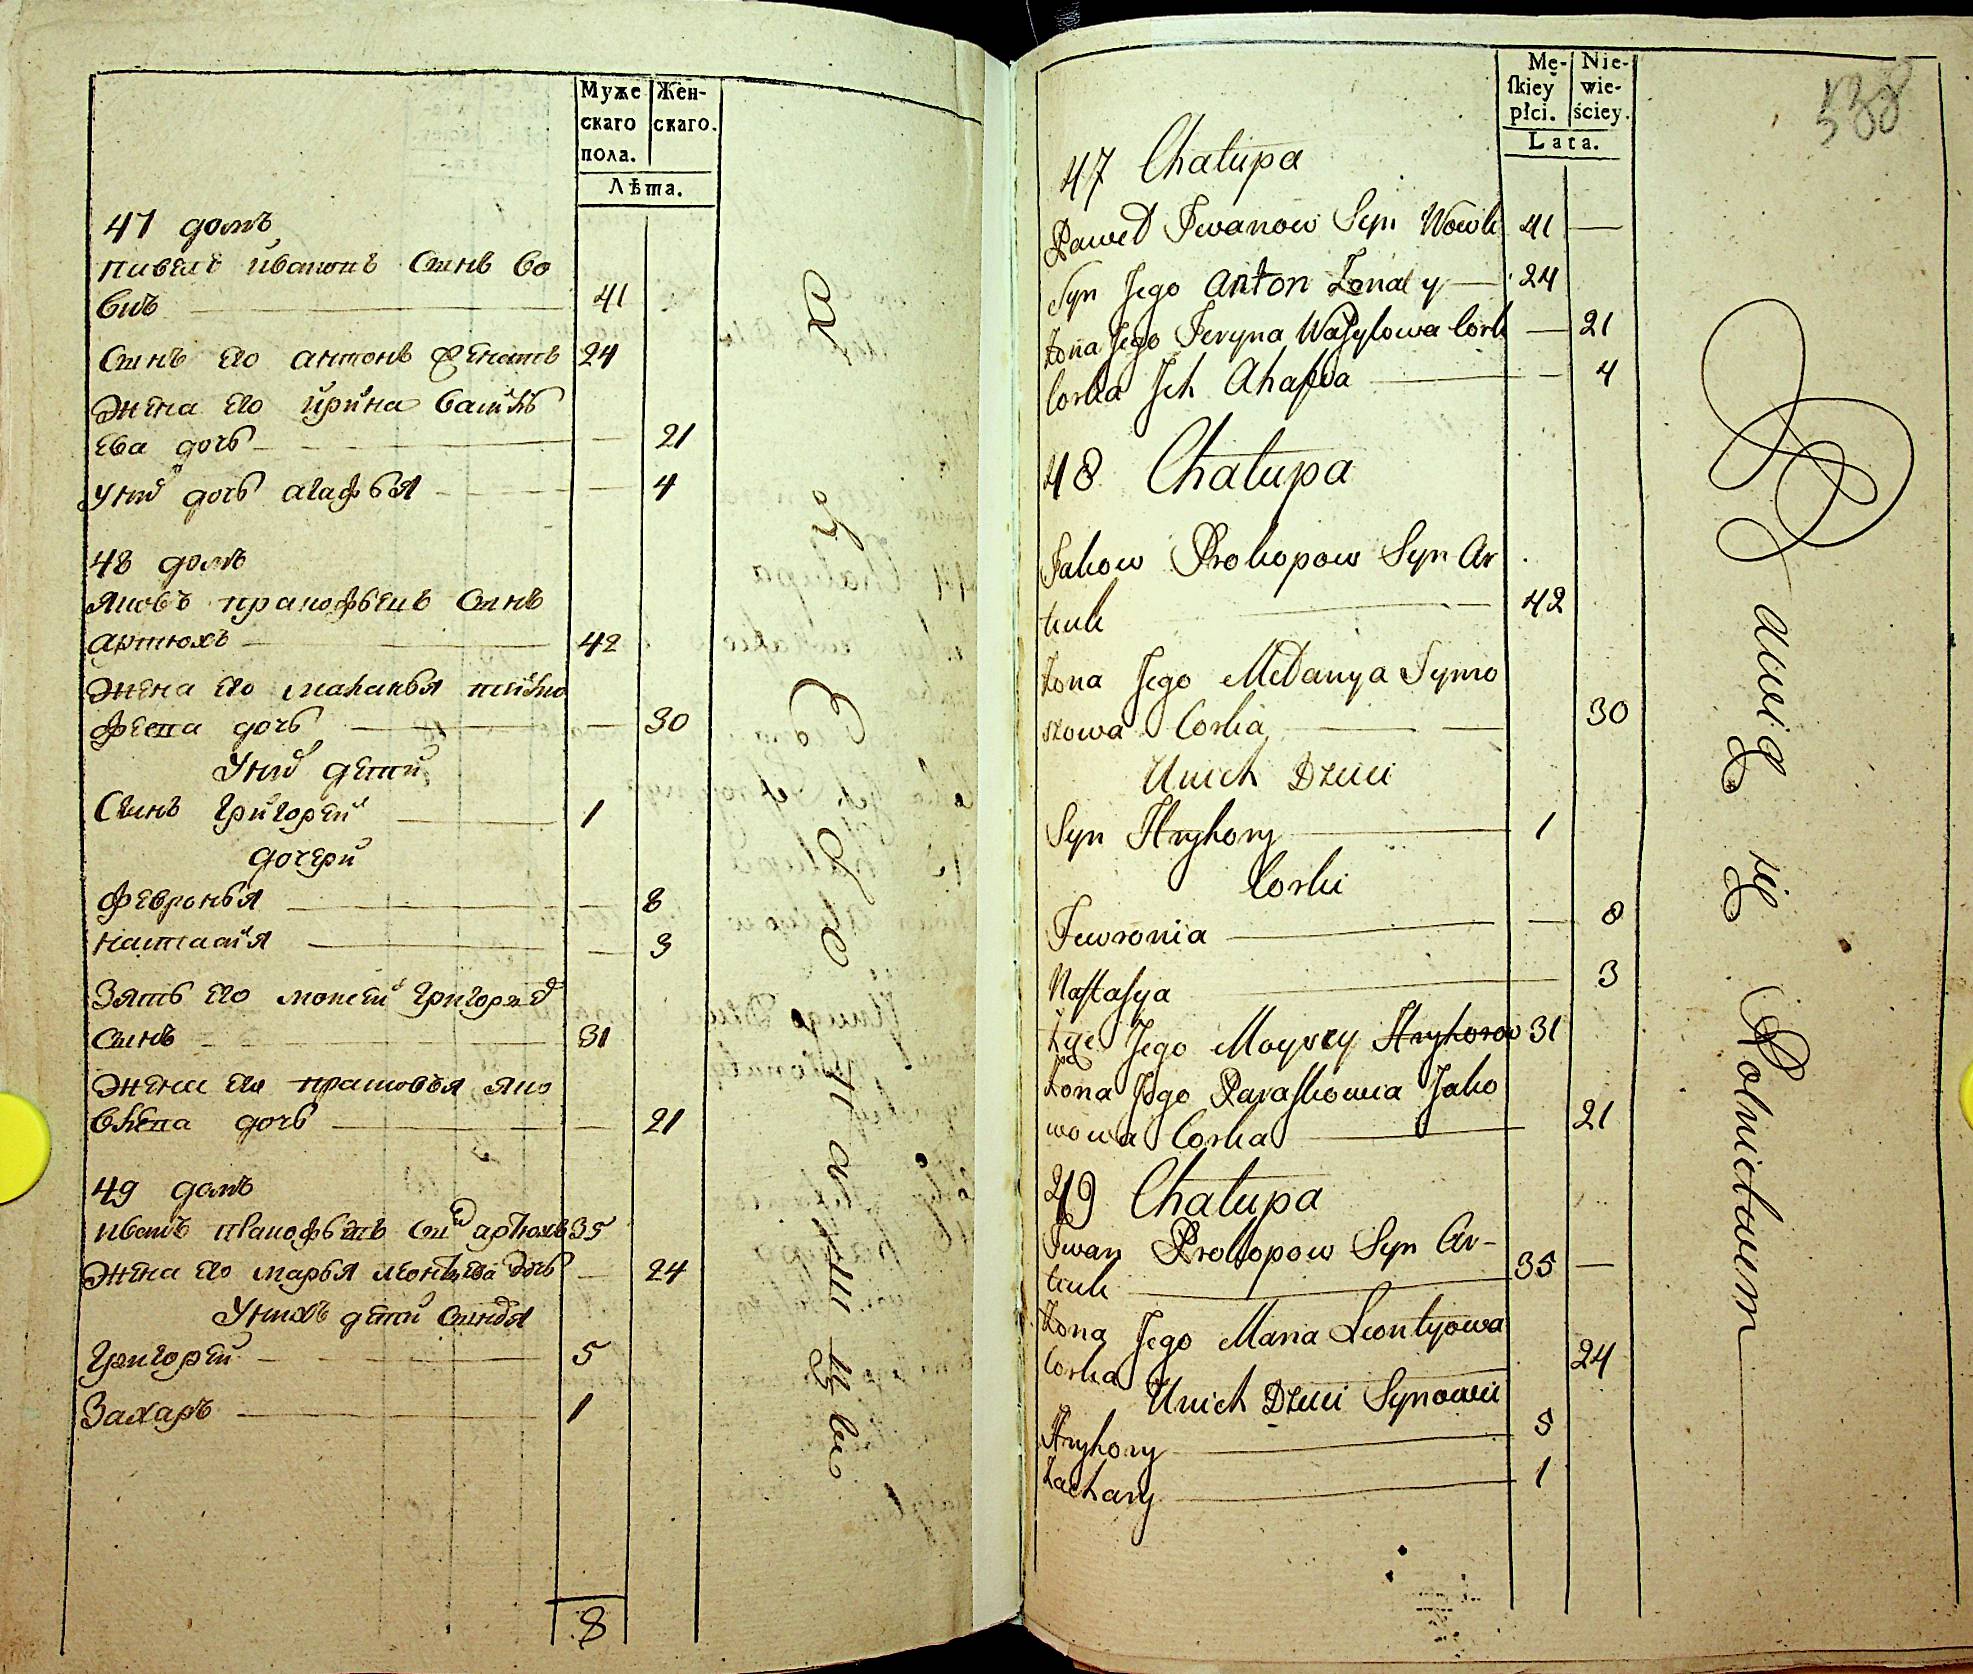 Муже
скаго
пола.
Жен-
скаго.
Лѣта.
47 домъ
павелъ ивановъ Сынъ Во
вкъ 41
Сынъ его антонъ женатъ 24
Жена его ирина василь
ева дочь 21
У них дочь агафья 4
48 домъ
яковъ пракофьевъ Сынъ
артюхъ 42
Жена его маланья
дочь 30
У них дети
Сынъ Григорей 1
дочери
февронья 8
3
Зять его моисеи григорьев
сынъ 31
Жена его прасковья яко
влева дочь 21
49 домъ
иванъ пракофьевъ сын артюхъ 35
Жена его марья леонтьева дочь 24
У нихъ дети сыновя
Григорей 5
Захаръ 1
8
Mę-
ſkiey
płci.
Nie-
wie-
ściey.
Lata.
538
47 Chałupa
Paweł Jwanow Syn Wowk 41
Syn Jego Anton Żonaty 24
Żona Jego Jeryna Wasylowa Corka 21
Corka Jch Ahafia 4
48 Chałupa
Jakow Prokopow Syn Ar
tiuk 42
Żona Jego Mełanya Tymo
szowa Corka 30
Unich Dzieci
Syn Hryhory 1
Corki
Fewronia 8
Nastasya 3
Zięć Jego Moysey Hryhorow 31
Żona Jego Paraskowia Jako
wowa Corka 21
49 Chałupa
Jwan Prokopow Syn Ar-
tiuk 35
Żona Jego Maria Leontyowa
Corka 24
Unich Dzieci Synowie
Hryhory 5
Zachary 1
Bawią się Rolnictwem